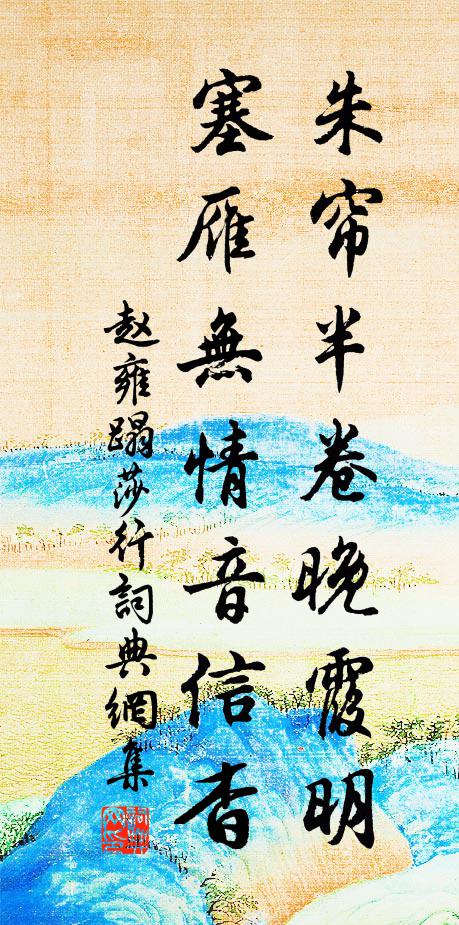 朱帘半卷晚霞明
塞雁無情音信杳
赵雍蹋莎行詞典網集